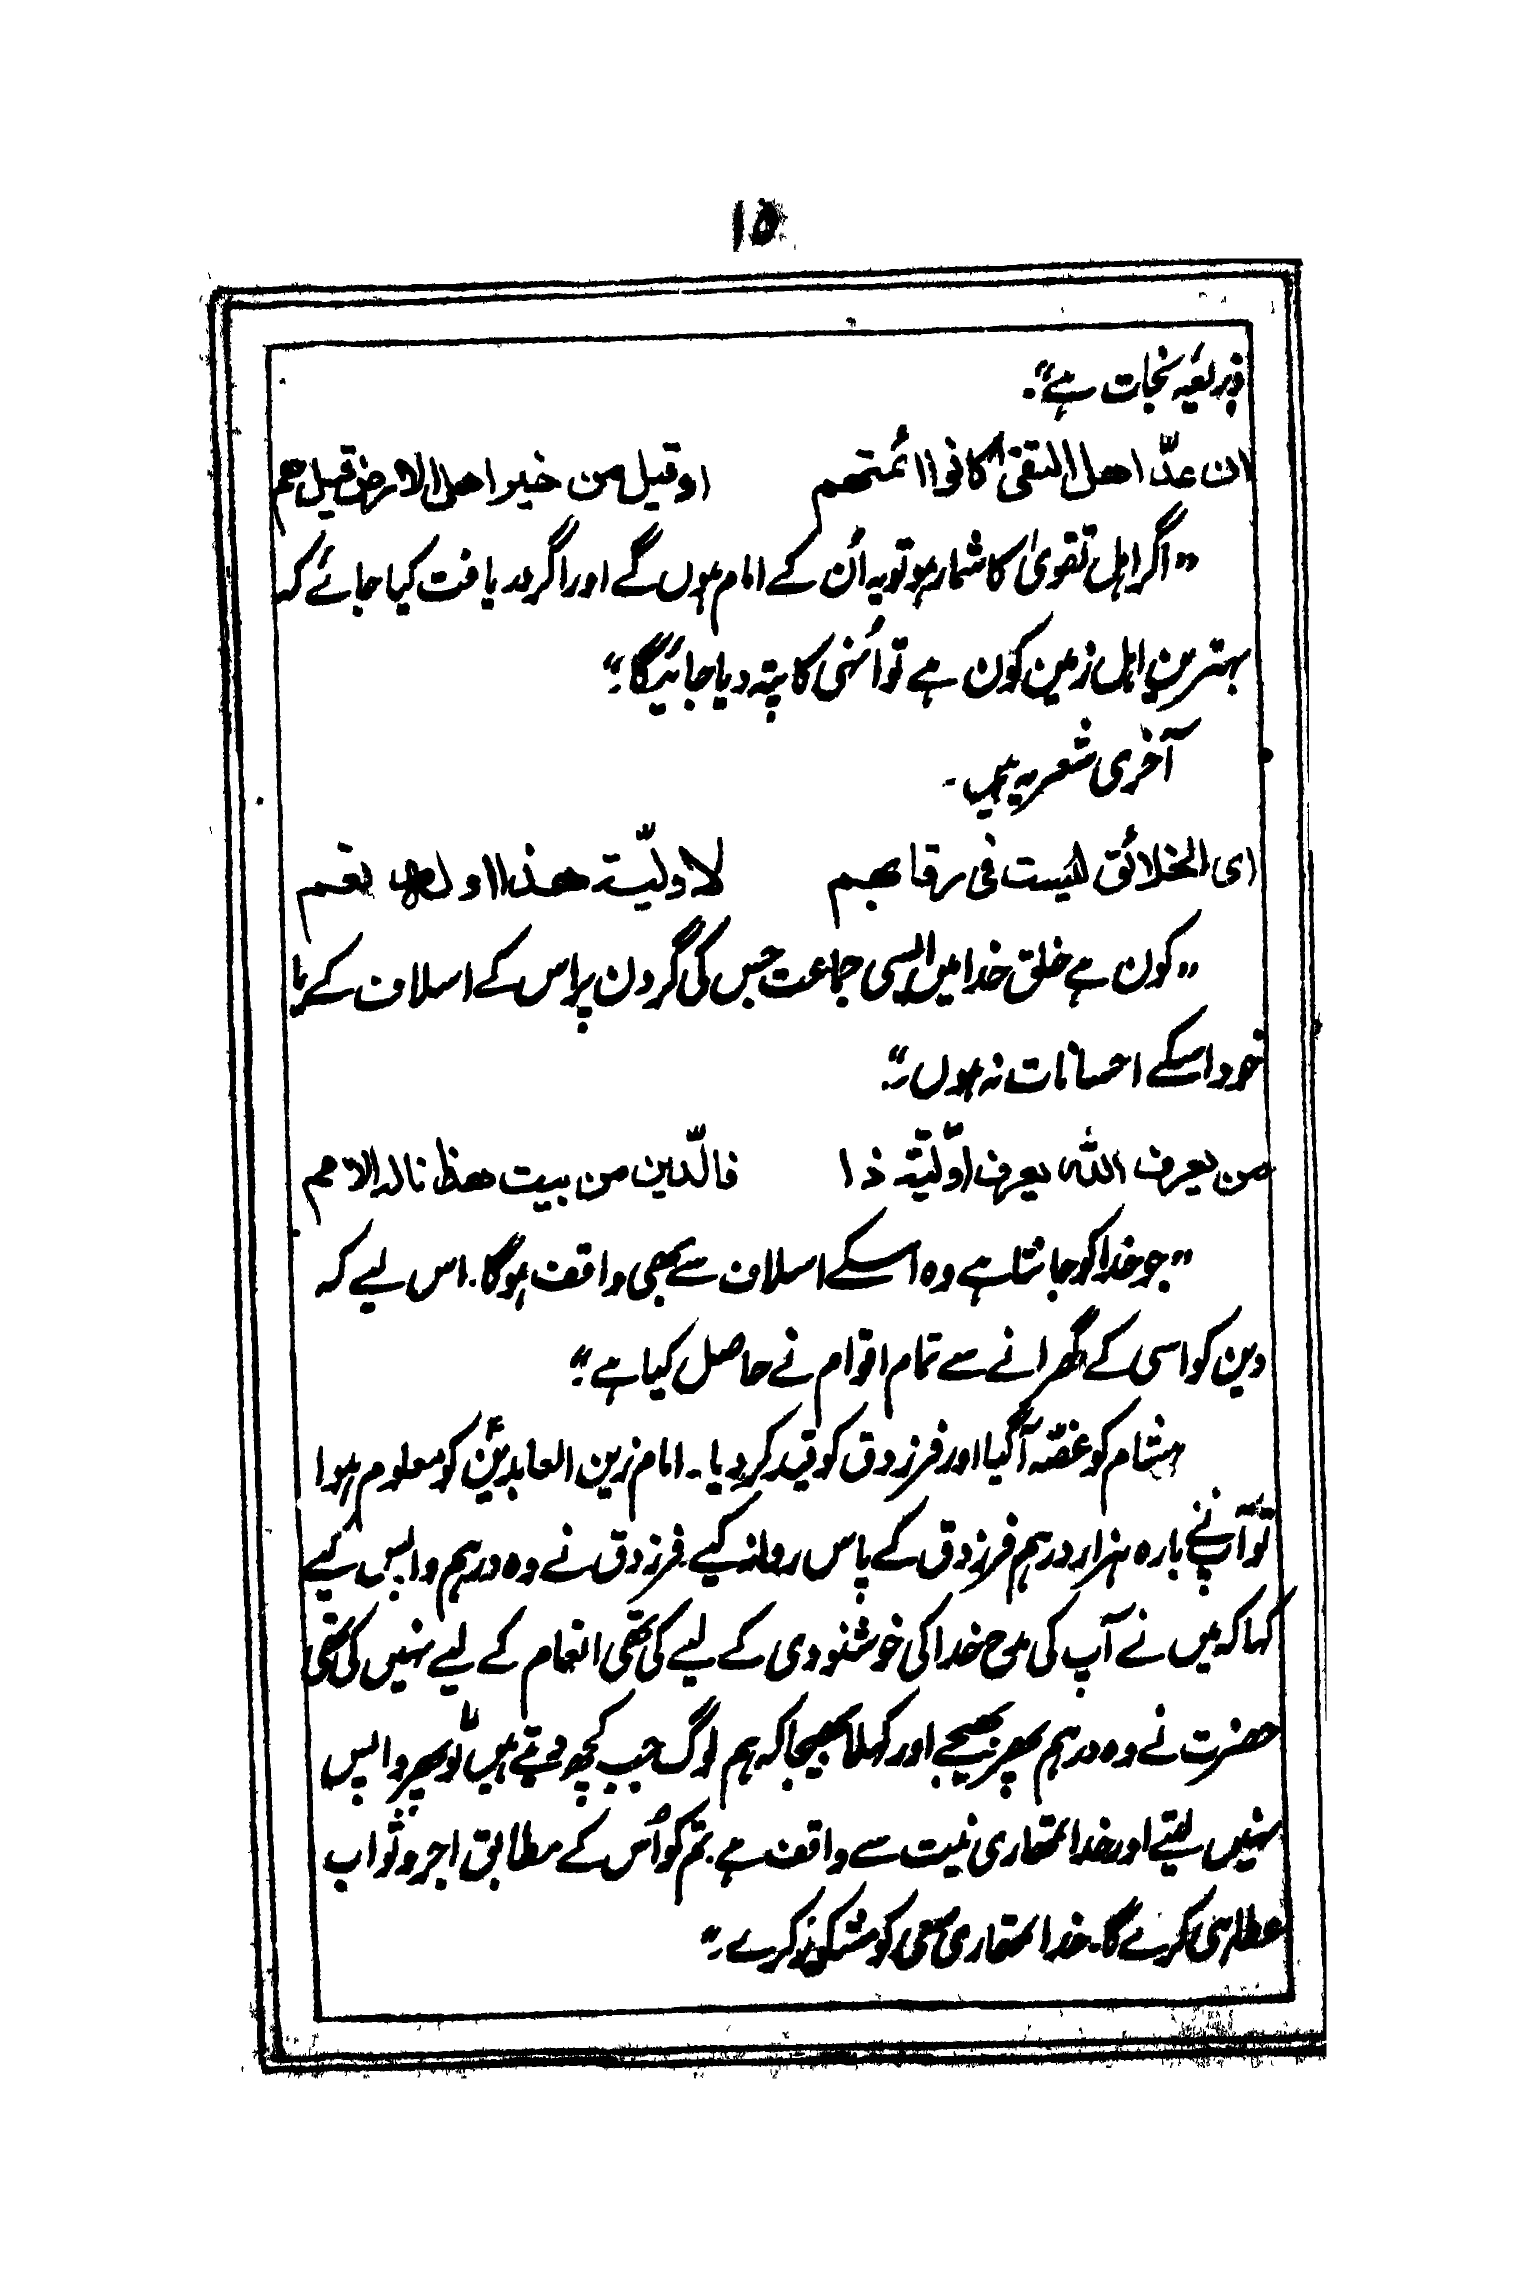 ۱۵
ذریعہ نجات ہے"۔
ان عدّ اھل التقیٰ کانوا ائمتھم اوقیل من خیر اھل الارض قیل ھم
"اگر اہل تقویٰ کا شمار ہو تو یہ اُن کے امام ہوں گے اور اگر دریافت کیا جائے کہ
بہترین اہل زمین کون ہے تو اُنہی کا پتہ دیا جائیگا"۔
آخری شعر یہ ہیں۔
ای الخلائق لیست فی رقابھم لاولیّۃ ھذا اولہ نعم
"کون ہے خلق خدا میں ایسی جماعت جس کی گردن پر اس کے اسلاف کے یا
خود اسکے احسانات نہ ہوں"۔
من یعرف اللہ یعرف اوّلیّۃ ذا فالدّین من بیت ھذا نالہ الامم
"جو خدا کو جانتا ہے وہ اسکے اسلاف سے بھی واقف ہوگا۔ اس لیے کہ
دین کو اسی کے گھرانے سے تمام اقوام نے حاصل کیا ہے"۔
ہشام کو غصّہ آگیا اور فرزدق کو قید کر دیا۔ امام زین العابدینؑ کو معلوم ہوا
تو آپنے بارہ ہزار درہم فرزدق کے پاس روانہ کیے۔ فرزدق نے وہ درہم واپس کیے
کہا کہ میں نے آپ کی مدح خدا کی خوشنودی کے لیے کی تھی انعام کے لیے نہیں کی تھی
حضرت نے وہ درہم پھر بھیجے اور کہلا بھیجا کہ ہم لوگ جب کچھ دیتے ہیں تو پھر واپس
نہیں لیتے اور خدا تمھاری نیت سے واقف ہے۔ تم کو اُس کے مطابق اجر و ثواب
عطا ہی کرے گا۔ خدا تمھاری سعی کو مشکور کرے"۔